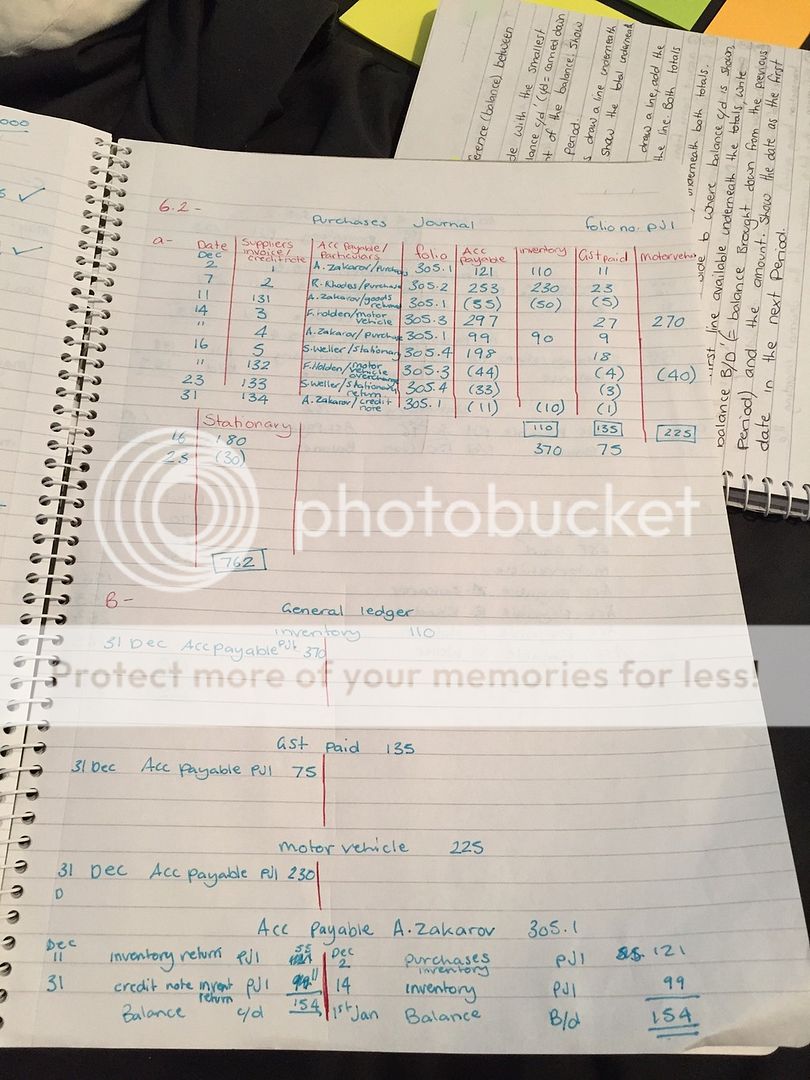 000
erence (balance) between
de with the smallest
lance c/d' (c/d = carried down
t of the balance. Show
Period.
draw a line underneath
show the total underneath
draw a line, add the
the line. Both totals
underneath both totals.
side to where balance c/d is shown.
first line available underneath the totals, write
balance B/D' (= balance Brought down from the previous
Period) and the amount. Show the date as the first
date in the next Period.
6.2-
Purchases Journal folio no. PJ1
a- Date Suppliers invoice/creditnote Acc Payable/Particulars folio Acc payable inventory Gst paid motorvehic
Dec
2 1 A. Zakarov/Purchas 305.1 121 110 11
7 2 R. Rhodes/purchase 305.2 253 230 23
11 131 A. Zakarov/goods returned 305.1 (55) (50) (5)
14 3 F. Holden/motor vehicle 305.3 297 27 270
" 4 A. Zakarov/purchase 305.1 99 90 9
16 5 S. Weller/Stationary 305.4 198 18
" 132 F. Holden/motor vehicle overcharge 305.3 (44) (4) (40)
23 133 S. Weller/Stationary return 305.4 (33) (3)
31 134 A. Zakarov/credit note 305.1 (11) (10) (1)
110 135 225
370 75
Stationary
16 180
23 (30)
762
photobucket
B-
General ledger
inventory 110
31 Dec Acc payable PJ1 370
Protect more of your memories for less!
Gst paid 135
31 Dec Acc Payable PJ1 75
motor vehicle 225
31 Dec Acc payable PJ1 230
D
Acc Payable A. Zakarov 305.1
Dec 11 inventory return PJ1 55 Dec 2 purchases inventory PJ1 121
31 credit note invent return PJ1 11 14 inventory PJ1 99
Balance c/d 154 1st Jan Balance B/d 154